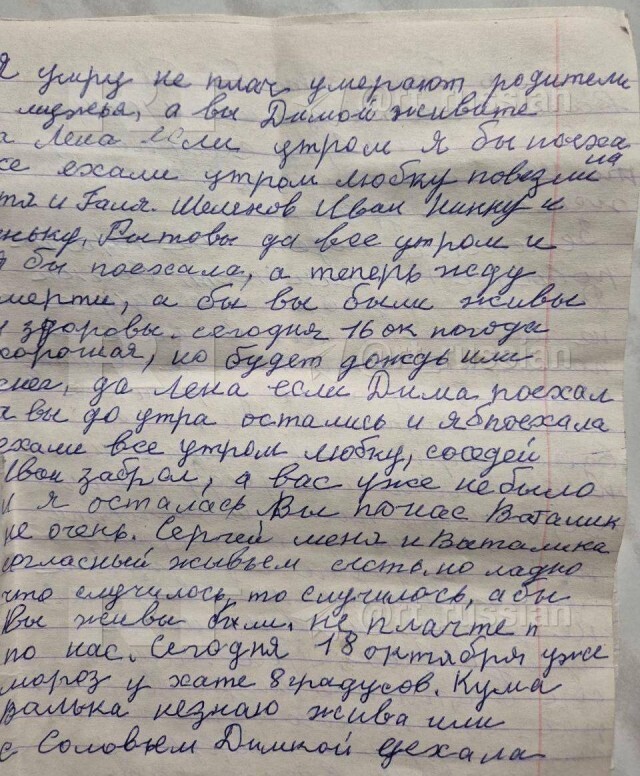 Я умру не плач умерают родители
а вы Димой живите
а Лена если утром я бы поеха
се ехали утром любку повезли на
тя и Галя. Шеленов Иван Нинку и
да все утром и
я бы поехала, а теперь жду
мерти, а бы вы были живы
и здоровы. сегодня 16 ок погода
хорошая, но будет дождь или
снег, да Лена если Дима поехал
а вы до утра остались и я б поехала
ехали все утром любку, соседей
Иван забрал, а вас уже небыло
и я осталась Вы по нас Виталик
не очень. Сергей меня и Виталика
огласный живьем сьесть, но ладно
что случилось, то случилось, абы
Вы живы были. не плачте п
по нас. Сегодня 18 октября уже
мороз у хате 8 градусов. Кума
валька незнаю жива или
с Соловьем Димкой уехала
@rt_russian
@rt_russian
@rt_russian